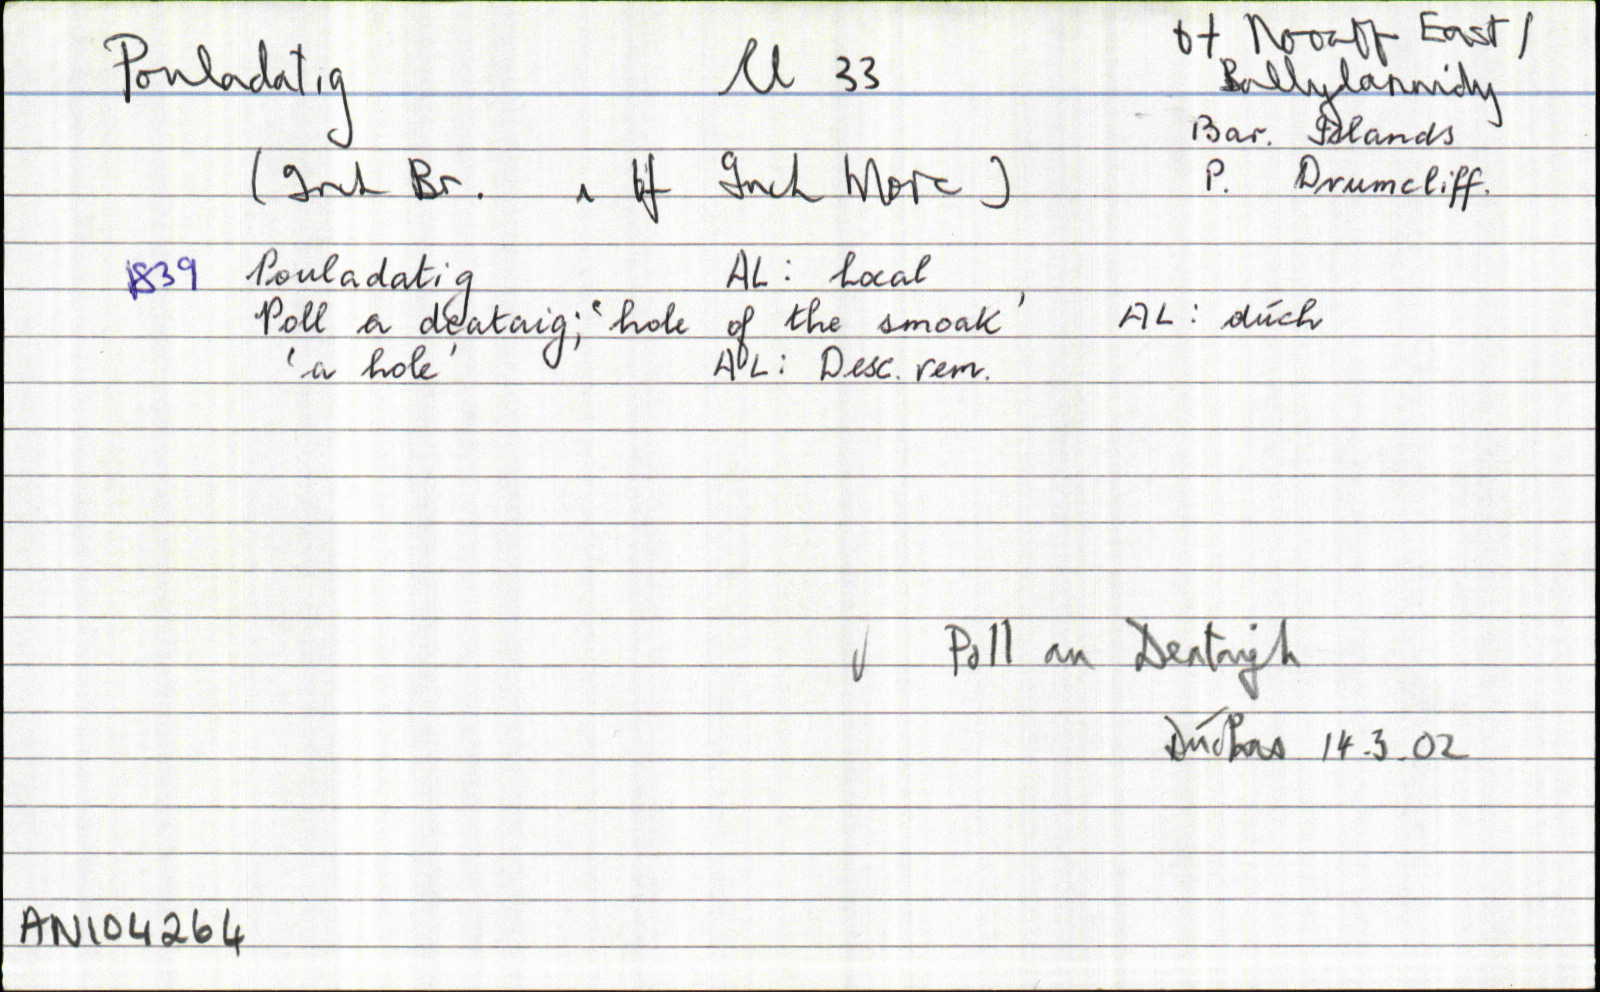 Pouladatig Cl 33 bf Nooaff East /
Ballylannidy
Bar. Islands
(Inch Br. i bf Inch More) P. Drumcliff.
1839 Pouladatig AL: Local
Poll a deataig; 'hole of the smoak' AL: dúch
'a hole' AL: Desc. rem.
Poll an Deataigh
Dúchas 14.3.02
AN104264